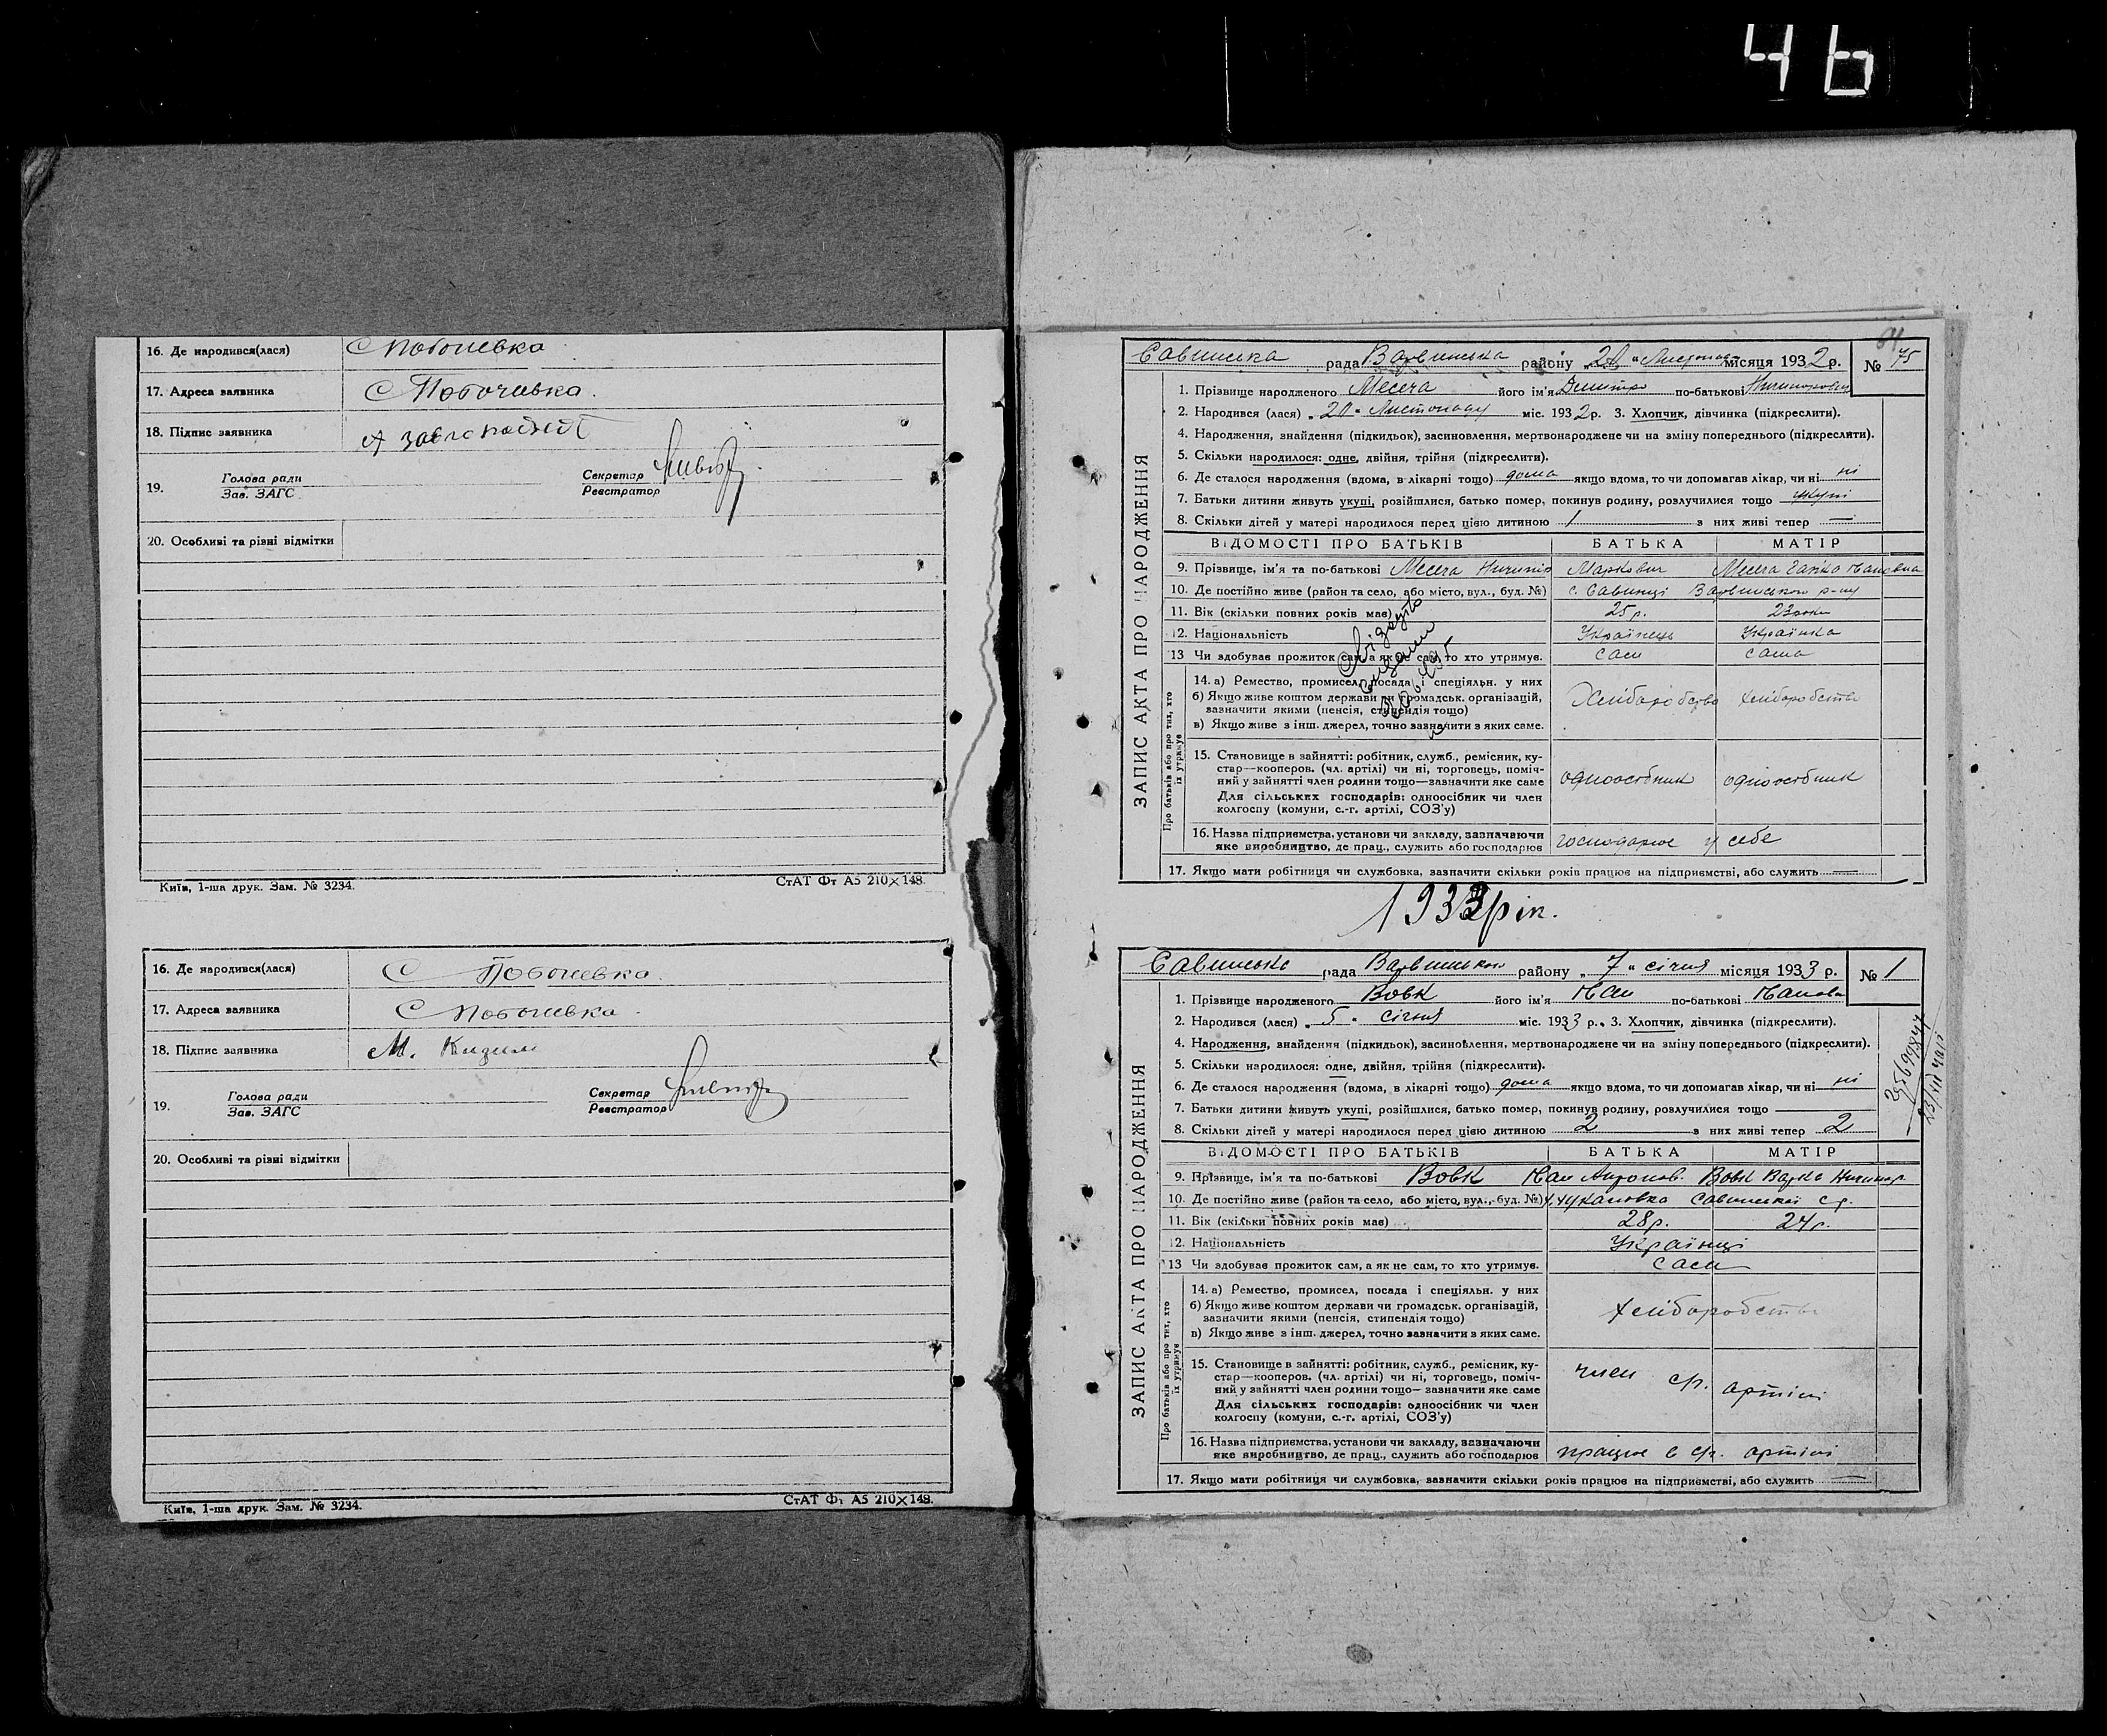 46
16. Де народився(лася) С Поточевка
17. Адреса заявника С Поточивка.
18. Підпис заявника
19. Голова ради
Зав. ЗАГС
Секретар
Реєстратор
20. Особливі та різні відмітки
Київ, 1-ша друк. Зам. № 3234.
СтАТ Фт А5 210×148.
16. Де народився(лася) С Поточевка.
17. Адреса заявника С Поточевка.
18. Підпис заявника М.
19. Голова ради
Зав. ЗАГС
Секретар
Реєстратор
20. Особливі та різні відмітки
Київ, 1-ша друк. Зам. № 3234.
СтАТ Фт А5 210×148.
ЗАПИС АКТА ПРО НАРОДЖЕННЯ
Савинська рада Варвинська району „ “ Листопада місяця 1932 р. № 75
1. Прізвище народженого Месеча його ім'я Дмитро по-батькові
2. Народився (лася) „20“ Листопаду міс. 1932 р. 3. Хлопчик, дівчинка (підкреслити).
4. Народження, знайдення (підкидьок), засиновлення, мертвонароджене чи на зміну попереднього (підкреслити).
5. Скільки народилося: одне, двійня, трійня (підкреслити).
6. Де сталося народження (вдома, в лікарні тощо) дома якщо вдома, то чи допомагав лікар, чи ні ні
7. Батьки дитини живуть укупі, розійшлися, батько помер, покинув родину, розлучилися тощо укупі
8. Скільки дітей у матері народилося перед цією дитиною 1 з них живі тепер —
ВІДОМОСТІ ПРО БАТЬКІВ БАТЬКА МАТІР
9. Прізвище, ім'я та по-батькові Месеча Ничипір Маркович Месеча
10. Де постійно живе (район та село, або місто, вул., буд. №) с. Савинці Варвинського р-ну
11. Вік (скільки повних років має) 25 р. 23 роки
12. Національність Українець Українка
13 Чи здобуває прожиток сам, а як не сам, то хто утримує. сам сама
Про батьків або про тих, хто їх утримує
14. а) Ремество, промисел, посада і спеціяльн. у них
б) Якщо живе коштом держави чи громадськ. організацій,
зазначити якими (пенсія, стипендія тощо)
в) Якщо живе з інш. джерел, точно зазначити з яких саме.
Хліборобство хліборобство
15. Становище в зайнятті: робітник, служб., ремісник, ку-
стар—кооперов. (чл. артілі) чи ні, торговець, поміч-
ний у зайнятті член родини тощо—зазначити яке саме
Для сільських господарів: одноосібник чи член
колгоспу (комуни, с.-г. артілі, СОЗ'у)
одноосібник одноосібник
16. Назва підприємства, установи чи закладу, зазначаючи
яке виробництво, де прац., служить або господарює
господарює у себе
17. Якщо мати робітниця чи службовка, зазначити скільки років працює на підприємстві, або служить —
1933 рік.
ЗАПИС АКТА ПРО НАРОДЖЕННЯ
Савинська рада Варвинського району „7“ січня місяця 1933 р. № 1
1. Прізвище народженого Вовк його ім'я Пан по-батькові Панова
2. Народився (лася) „5“ січня міс. 1933 р. 3. Хлопчик, дівчинка (підкреслити).
4. Народження, знайдення (підкидьок), засиновлення, мертвонароджене чи на зміну попереднього (підкреслити).
5. Скільки народилося: одне, двійня, трійня (підкреслити).
6. Де сталося народження (вдома, в лікарні тощо) дома якщо вдома, то чи допомагав лікар, чи ні ні
7. Батьки дитини живуть укупі, розійшлися, батько помер, покинув родину, розлучилися тощо
8. Скільки дітей у матері народилося перед цією дитиною 2 з них живі тепер 2
ВІДОМОСТІ ПРО БАТЬКІВ БАТЬКА МАТІР
9. Прізвище, ім'я та по-батькові Вовк Пан Вовк Варка Ничипор.
10. Де постійно живе (район та село, або місто, вул., буд. №) Савинської с р.
11. Вік (скільки повних років має) 28 р. 24 р.
12. Національність Українці
13 Чи здобуває прожиток сам, а як не сам, то хто утримує. сами
Про батьків або про тих, хто їх утримує
14. а) Ремество, промисел, посада і спеціяльн. у них
б) Якщо живе коштом держави чи громадськ. організацій,
зазначити якими (пенсія, стипендія тощо)
в) Якщо живе з інш. джерел, точно зазначити з яких саме.
хліборобство
15. Становище в зайнятті: робітник, служб., ремісник, ку-
стар—кооперов. (чл. артілі) чи ні, торговець, поміч-
ний у зайнятті член родини тощо—зазначити яке саме
Для сільських господарів: одноосібник чи член
колгоспу (комуни, с.-г. артілі, СОЗ'у)
член с/г. артілі
16. Назва підприємства, установи чи закладу, зазначаючи
яке виробництво, де прац., служить або господарює
працює в с/г. артілі
17. Якщо мати робітниця чи службовка, зазначити скільки років працює на підприємстві, або служить —